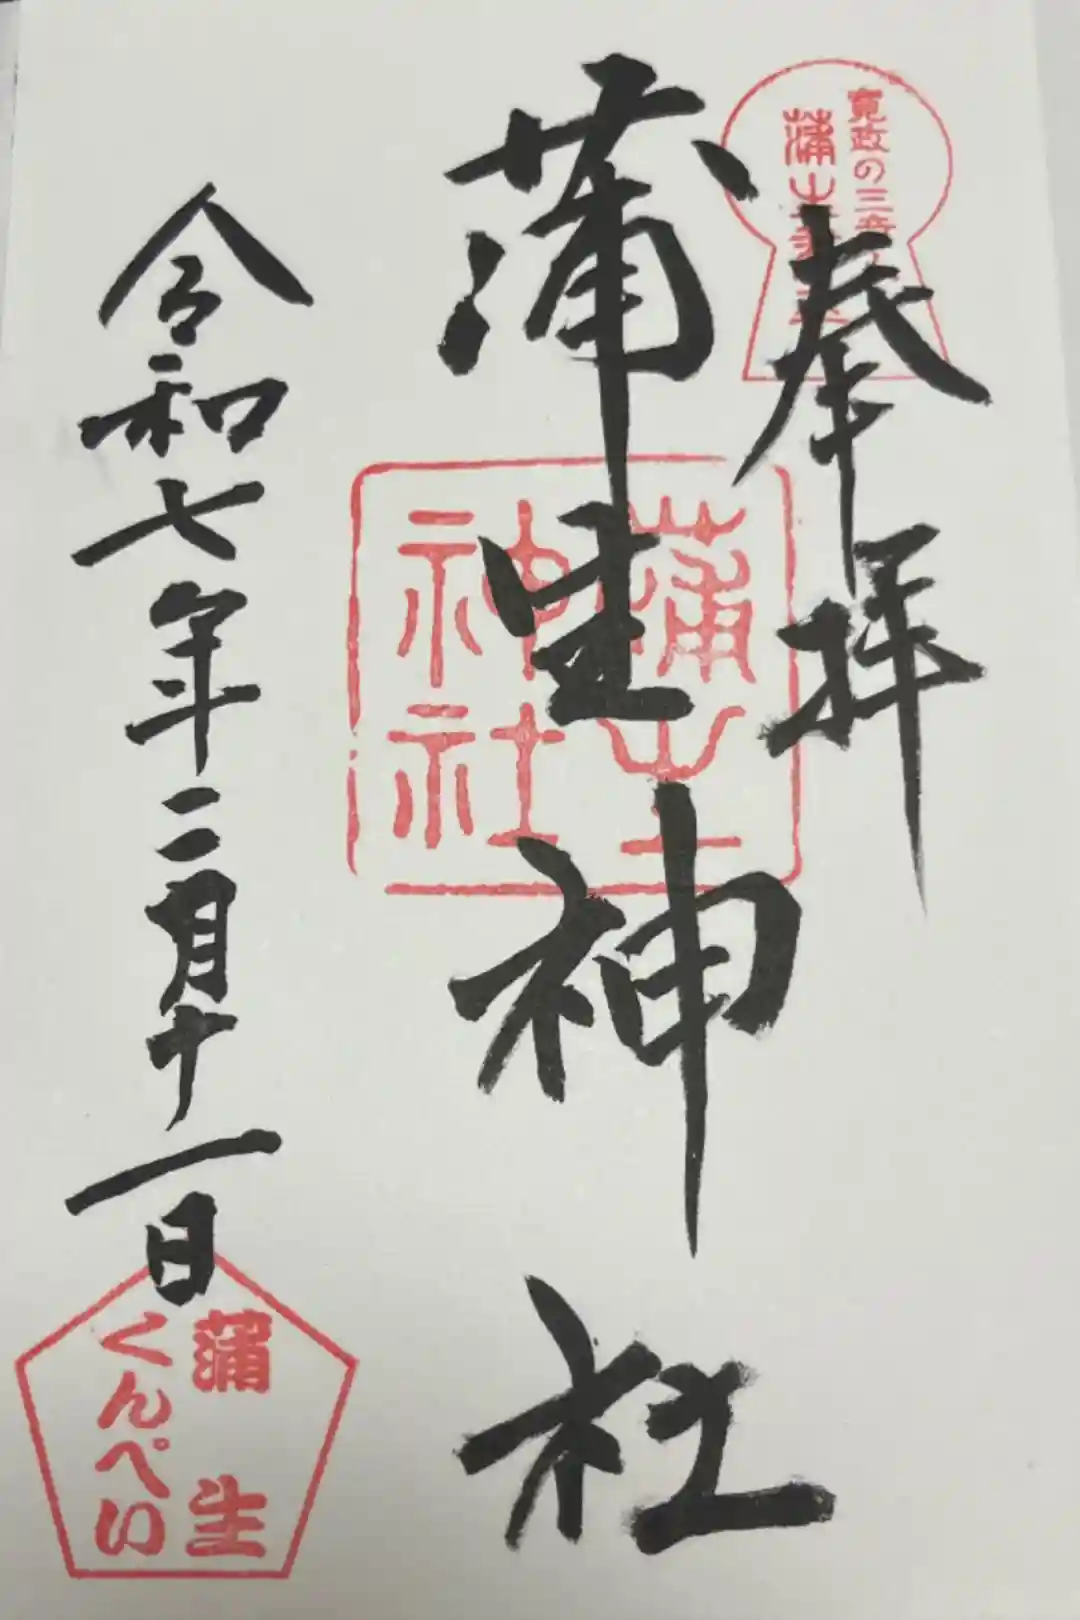 寛政の三奇
蒲生
奉拝
蒲生神社
蒲生
神社
令和七年二月十一日
蒲生
くんぺい